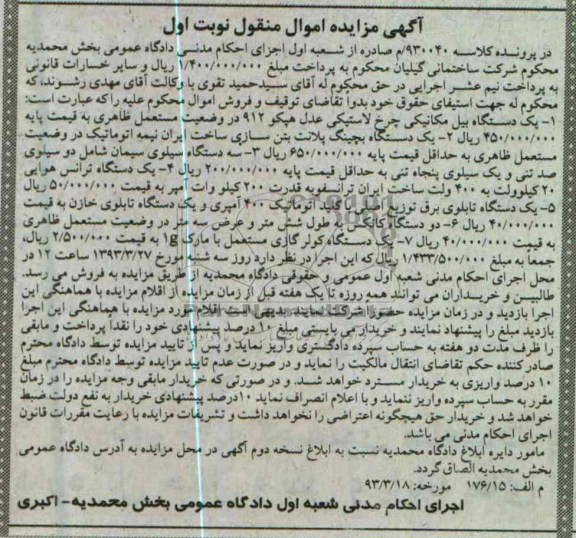 آگهی مزایده اموال منقول نوبت اول
در پرونده کلاسه ۹۳۰۰۴۰/م صادره از شعبه اول اجرای احکام مدنی دادگاه عمومی بخش محمدیه
محکوم شرکت ساختمانی گیلیان محکوم به پرداخت مبلغ ۱/۴۰۰/۰۰۰/۰۰۰ ریال و سایر خسارات قانونی
به پرداخت نیم عشر اجرایی در حق محکوم له آقای سیدحمید تقوی با وکالت آقای مهدی رشوند، که
محکوم له جهت استیفای حقوق خود بدوا تقاضای توقیف و فروش اموال محکوم علیه را که عبارت است:
۱- یک دستگاه بیل مکانیکی چرخ لاستیکی عدل هپکو ۹۱۲ در وضعیت مستعمل ظاهری به قیمت پایه
۴۵۰/۰۰۰/۰۰۰ ریال ۲- یک دستگاه بچینگ پلانت بتن سازی ساخت ایران نیمه اتوماتیک در وضعیت
مستعمل ظاهری به حداقل قیمت پایه ۶۵۰/۰۰۰/۰۰۰ ریال ۳- سه دستگاه سیلوی سیمان شامل دو سیلوی
صد تنی و یک سیلوی پنجاه تنی به حداقل قیمت پایه ۲۰۰/۰۰۰/۰۰۰ ریال ۴- یک دستگاه ترانس هوایی
۲۰ کیلوولت به ۴۰۰ ولت ساخت ایران ترانسفو به قدرت ۲۰۰ کیلو وات آمپر به قیمت ۵۰/۰۰۰/۰۰۰ ریال
۵- یک دستگاه تابلوی برق توزیع با کلید فول اتوماتیک ۴۰۰ آمپری و یک دستگاه تابلوی خازن به قیمت
۴۰/۰۰۰/۰۰۰ ریال ۶- دو دستگاه کانکس به طول شش متر و عرض سه متر در وضعیت مستعمل ظاهری
به قیمت ۴۰/۰۰۰/۰۰۰ ریال ۷- یک دستگاه کولر گازی مستعمل با مارک lg به قیمت ۲/۵۰۰/۰۰۰ ریال،
جمعا به مبلغ ۱/۴۳۳/۵۰۰/۰۰۰ ریال که این اجرا در نظر دارد روز سه شنبه مورخ ۱۳۹۳/۳/۲۷ ساعت ۱۲ در
محل اجرای احکام مدنی شعبه اول عمومی و حقوقی دادگاه محمدیه از طریق مزایده به فروش می رسد.
طالبیسن و خریداران می توانند همه روزه تا یک هفته قبل از زمان مزایده از اقلام مزایده با هماهنگی این
اجرا بازدید و در زمان مزایده حضورا شرکت نمایند. بدیهی است اقلام مورد مزایده با هماهنگی این اجرا
بازدید مبلغ را پیشنهاد نمایند و خریدار می بایستی مبلغ ۱۰ درصد پیشنهادی خود را نقدا پرداخت و مابقی
را ظرف مدت دو هفته به حساب سپرده دادگستری واریز نماید و پس از تایید مزایده توسط دادگاه محترم
صادر کننده حکم تقاضای انتقال مالکیت را نماید و در صورت عدم تایید مزایده توسط دادگاه محترم مبلغ
۱۰ درصد واریزی به خریدار مسترد خواهد شد. و در صورتی که خریدار مابقی وجه مزایده را در زمان
مقرر به حساب سپرده واریز ننماید و با اعلام انصراف نماید ۱۰درصد پیشنهادی خریدار به نفع دولت ضبط
خواهد شد و خریدار حق هیچگونه اعتراضی را نخواهد داشت و تشریفات مزایده با رعایت مقررات قانون
اجرای احکام مدنی می باشد.
مامور دایره ابلاغ دادگاه محمدیه نسبت به ابلاغ نسخه دوم آگهی در محل مزایده به آدرس دادگاه عمومی
بخش محمدیه الصاق گردد.
م الف: ۱۷۶/۱۵ مورخه: ۹۳/۳/۱۸
اجرای احکام مدنی شعبه اول دادگاه عمومی بخش محمدیه- اکبری